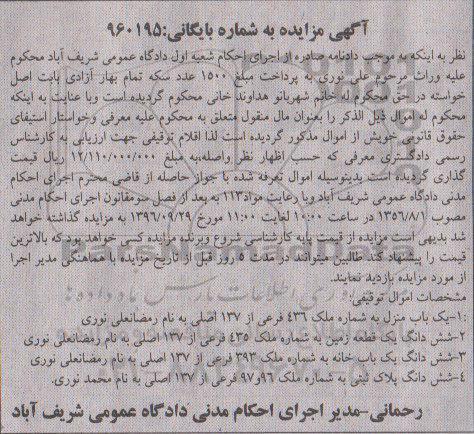 آگهی مزایده به شماره بایگانی:۹۶۰۱۹۵
نظر به اینکه به موجب دادنامه صادره از اجرای احکام شعبه اول دادگاه عمومی شریف آباد محکوم
علیه وراث مرحوم علی نوری به پرداخت مبلغ ۱۵۰۰ عدد سکه تمام بهار آزادی بابت اصل
خواسته در حق محکوم له خانم شهربانو هداوند خانی محکوم گردیده است وبا عنایت به اینکه
محکوم له اموال ذیل الذکر را بعنوان مال منقول متعلق به محکوم علیه معرفی وخواستار استیفای
حقوق قانونی خویش از اموال مذکور گردیده است لذا اقلام توقیفی جهت ارزیابی به کارشناس
رسمی دادگستری معرفی که حسب اظهار نظر واصله،به مبلغ ۱۲/۱۱۰/۰۰۰/۰۰۰ ریال قیمت
گذاری گردیده است بدینوسیله اموال تعرفه شده با جواز حاصله از قاضی محترم اجرای احکام
مدنی دادگاه عمومی شریف آباد وبا رعایت مواد۱۱۳ به بعد از فصل سومقانون اجرای احکام مدنی
مصوب ۱۳۵۶/۸/۱ در ساعت ۱۰:۰۰ لغایت ۱۱:۰۰ مورخ ۱۳۹۶/۰۹/۲۹ به مزایده گذاشته خواهد
شد بدیهی است مزایده از قیمت پایه کارشناسی شروع وبرنده مزایده کسی خواهد بود که بالاترین
قیمت را پیشنهاد کند طالبین میتوانند در مدت ۵ روز قبل از تاریخ مزایده با هماهنگی مدیر اجرا
از مورد مزایده بازدید نمایند.
مشخصات اموال توقیفی:
۱-یک باب منزل به شماره ملک ۴۳۶ فرعی از ۱۳۷ اصلی به نام رمضانعلی نوری
۲-شش دانگ یک قطعه زمین به شماره ملک ۴۳۵ فرعی از ۱۳۷اصلی به نام رمضانعلی نوری
۳-شش دانگ یک باب خانه به شماره ملک ۳۹۳ فرعی از ۱۳۷ اصلی به نام رمضانعلی نوری
۴-شش دانگ پلاک ثبتی به شماره ملک ۹۶و۹۷ فرعی از ۱۳۷ اصلی به نام محمد نوری.
رحمانی-مدیر اجرای احکام مدنی دادگاه عمومی شریف آباد